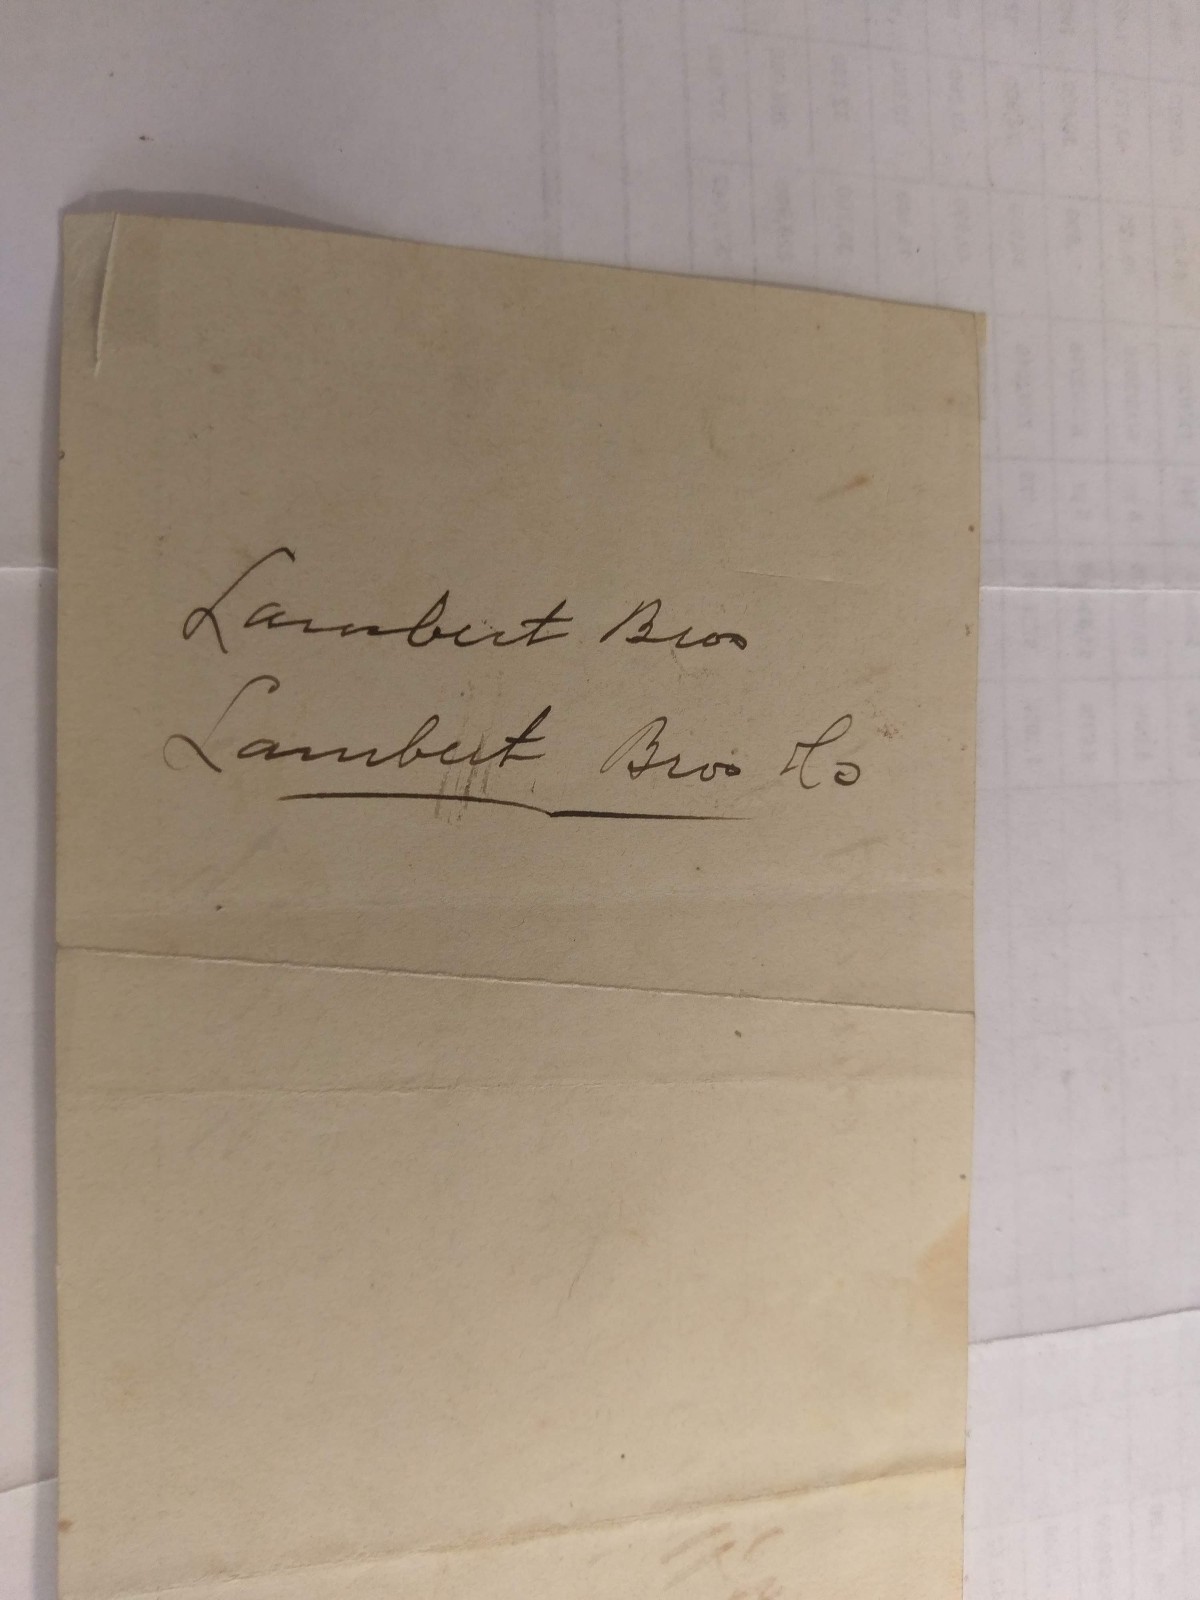 Lambert Bros
Lambert Bros Co